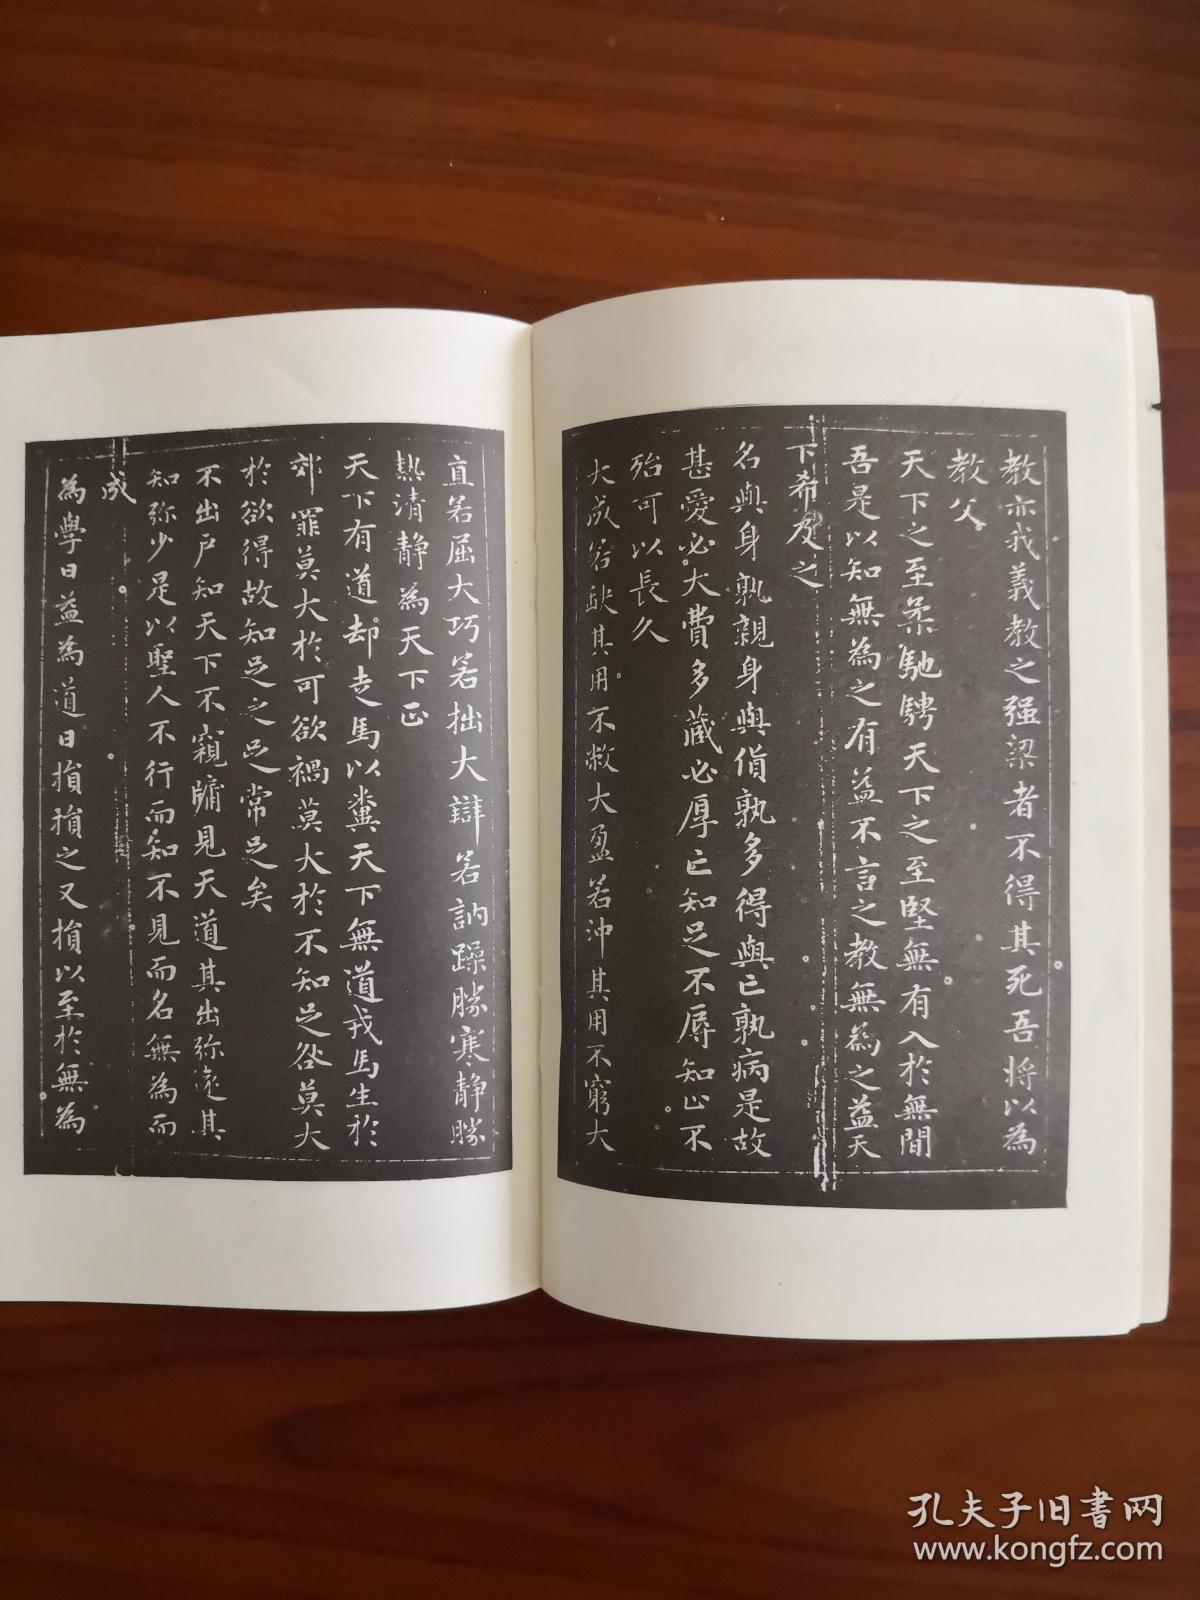 教亦我義教之强梁者不得其死吾將以為
教父
天下之至柔馳騁天下之至堅無有入於無間
吾是以知無為之有益不言之教無為之益天
下希及之
名與身孰親身與貨孰多得與亡孰病是故
甚愛必大費多藏必厚亡知足不辱知止不
殆可以長久
大成若缺其用不敝大盈若沖其用不窮大
直若屈大巧若拙大辯若訥躁勝寒静勝
熱清静為天下正
天下有道却走馬以糞天下無道戎馬生於
郊罪莫大於可欲禍莫大於不知足咎莫大
於欲得故知足之足常足矣
不出戶知天下不窺牖見天道其出弥遠其
知弥少是以聖人不行而知不見而名無為而
成
為學日益為道日損損之又損以至於無為
孔夫子旧书网
www.kongfz.com